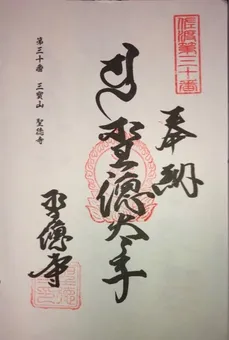 佐渡第三十番
奉納
聖徳太子
聖徳寺
第三十番 三寶山 聖徳寺